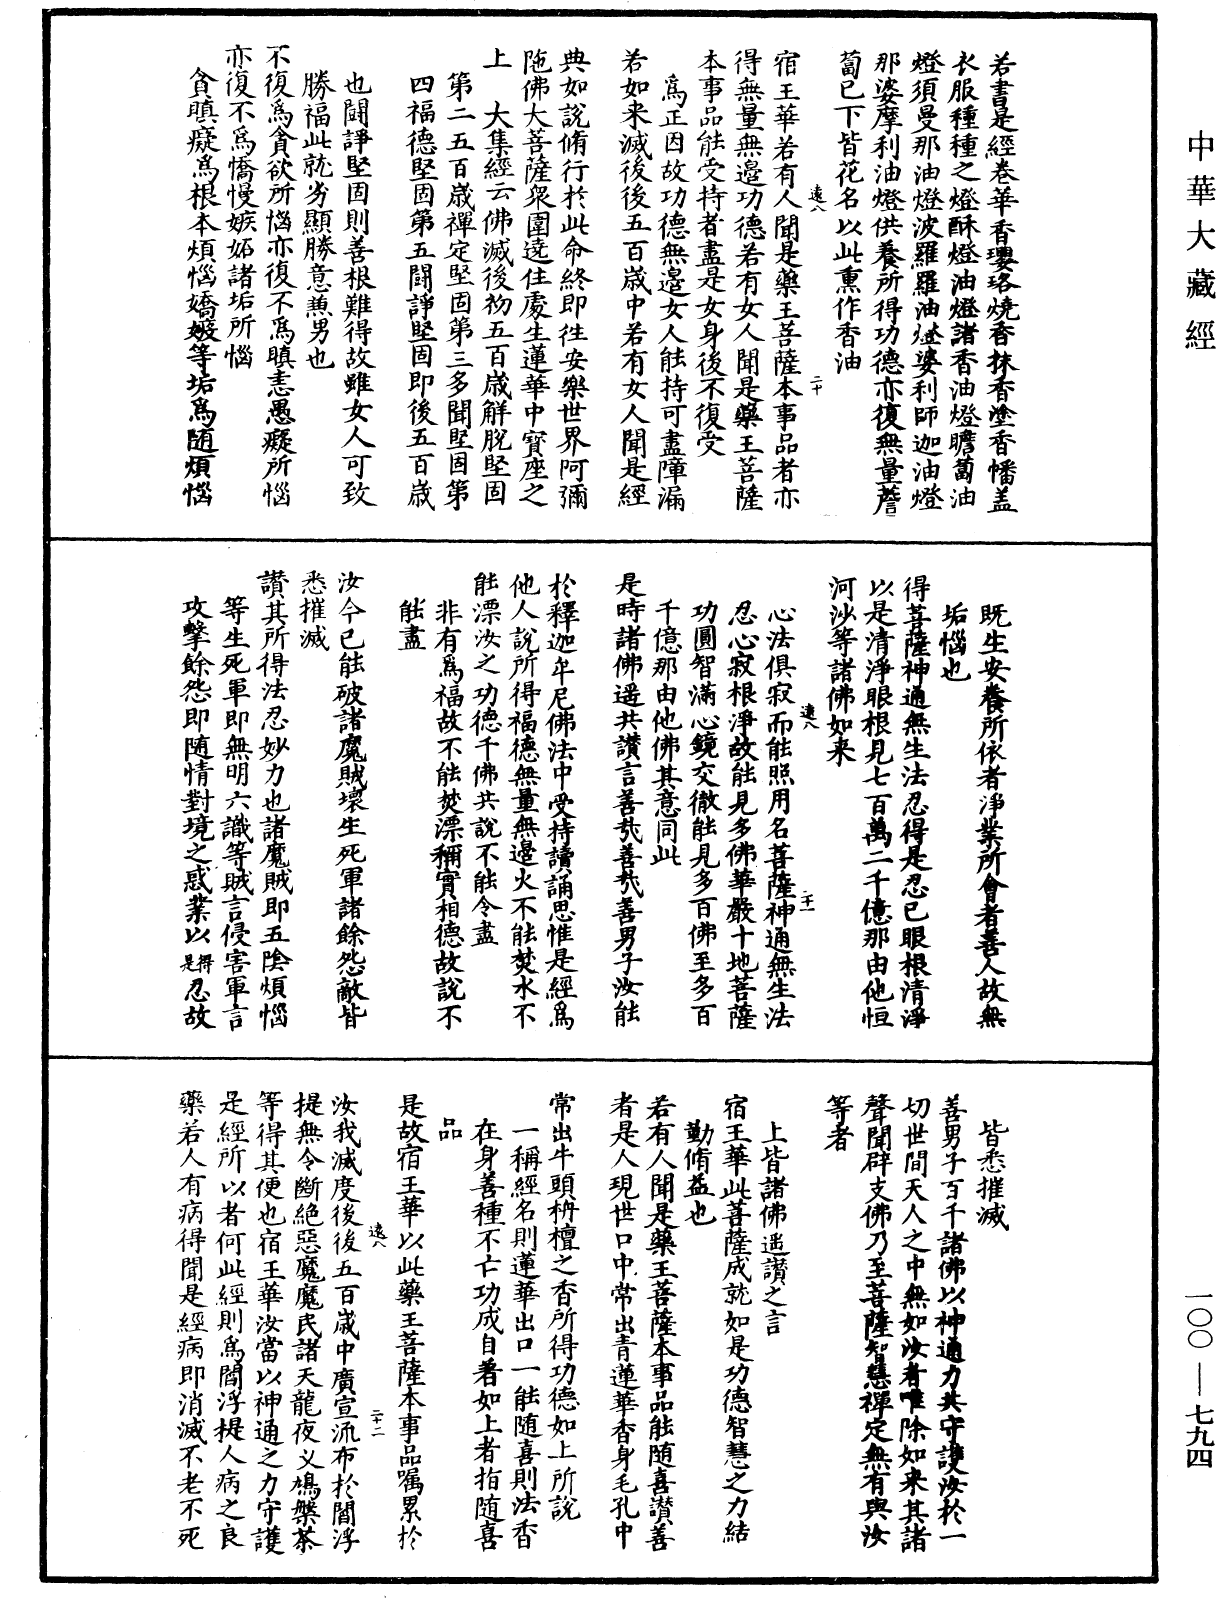 中華大藏經
若書是經卷華香瓔珞燒香抹香塗香幡盖
衣服種種之燈酥燈油燈諸香油燈瞻蔔油
燈須曼那油燈波羅羅油燈婆利師迦油燈
那婆摩利油燈供養所得功德亦復無量薝
蔔已下皆花名以此熏作香油
宿王華若有人聞是藥王菩薩本事品者亦
得無量無邊功德若有女人聞是藥王菩薩
本事品能受持者盡是女身後不復受
爲正因故功德無邊女人能持可盡障漏
若如来滅後後五百歲中若有女人聞是經
典如說脩行於此命終即往安樂世界阿彌
陁佛大菩薩衆圍遶住處生蓮華中寶座之
上　大集經云佛滅後初五百歲解脫堅固
第二五百歲禪定堅固第三多聞堅固第
四福德堅固第五鬪諍堅固即後五百歲
也鬪諍堅固則善根難得故雖女人可致
勝福此就劣顯勝意兼男也
不復爲貪欲所惱亦復不爲瞋恚愚癡所惱
亦復不爲憍慢嫉妬諸垢所惱
貪瞋癡爲根本煩惱嬌嫚等垢爲随煩惱
遠八
二十
既生安養所依者淨業所會者善人故無
垢惱也
得菩薩神通無生法忍得是忍已眼根清淨
以是清淨眼根見七百萬二千億那由他恒
河沙等諸佛如来
心法俱寂而能照用名菩薩神通無生法
忍心寂根淨故能見多佛華嚴十地菩薩
功圓智滿心鏡交徹能見多百佛至多百
千億那由他佛其意同此
是時諸佛遥共讚言善㢤善㢤善男子汝能
於釋迦牟尼佛法中受持讀誦思惟是經爲
他人說所得福德無量無邊火不能焚水不
能漂汝之功德千佛共說不能令盡
非有爲福故不能焚漂稱實相德故說不
能盡
汝今已能破諸魔賊壞生死軍諸餘怨敵皆
悉摧滅
讚其所得法忍妙力也諸魔賊即五陰煩惱
等生死軍即無明六識等賊言侵害軍言
攻擊餘怨即随情對境之惑業以得是忍故
遠八
二十一
皆悉摧滅
善男子百千諸佛以神通力共守護汝於一
切世間天人之中無如汝者唯除如来其諸
聲聞辟支佛乃至菩薩智慧禪定無有與汝
等者
上皆諸佛遥讚之言
宿王華此菩薩成就如是功德智慧之力結
勤脩益也
若有人聞是藥王菩薩本事品能随喜讚善
者是人現世口中常出青蓮華香身毛孔中
常出牛頭栴檀之香所得功德如上所說
一稱經名則蓮華出口一能随喜則法香
在身善種不亡功成自著如上者指随喜
品
是故宿王華以此藥王菩薩本事品囑累於
汝我滅度後後五百歲中廣宣流布於閻浮
提無令斷絕惡魔魔民諸天龍夜叉鳩槃茶
等得其便也宿王華汝當以神通之力守護
是經所以者何此經則爲閻浮提人病之良
藥若人有病得聞是經病即消滅不老不死
遠八
二十二
一〇〇—七九四